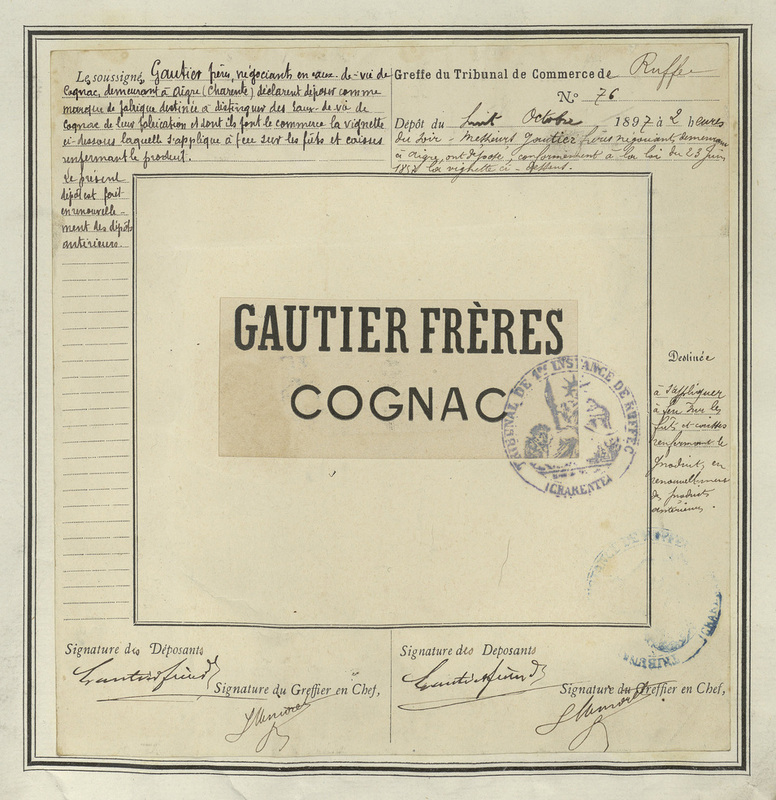 Le soussigné, Gautier frères, négociants en eaux-de-vie de
Cognac, demeurant à Aigre (Charente) déclarent déposer comme
marque de fabrique destinée à distinguer des eaux-de-vie de
Cognac de leur fabrication et dont ils font le commerce la vignette
ci-dessous laquelle s'applique à feu sur les fûts et caisses
renfermant le produit.
Le présent
dépôt est fait
en renouvelle-
ment des dépôts
antérieurs.
Greffe du Tribunal de Commerce de Ruffec
N° 76
Dépôt du huit Octobre 1897 à 2 heures
du soir - Messieurs Gautier frères négociant, demeurant
à Aigre, ont déposé, conformément à la loi du 23 juin
1857 la vignette ci-dessous.
GAUTIER FRÈRES
COGNAC
TRIBUNAL DE 1RE INSTANCE DE RUFFEC
(CHARENTE)
Destinée
à s'appliquer
à feu sur les
fûts et caisses
renfermant le
produit, en
renouvellement
des produits
antérieurs.
Signature des Déposants
Gautier frères
Signature du Greffier en Chef,
Signature des Déposants
Gautier frères
Signature du Greffier en Chef,